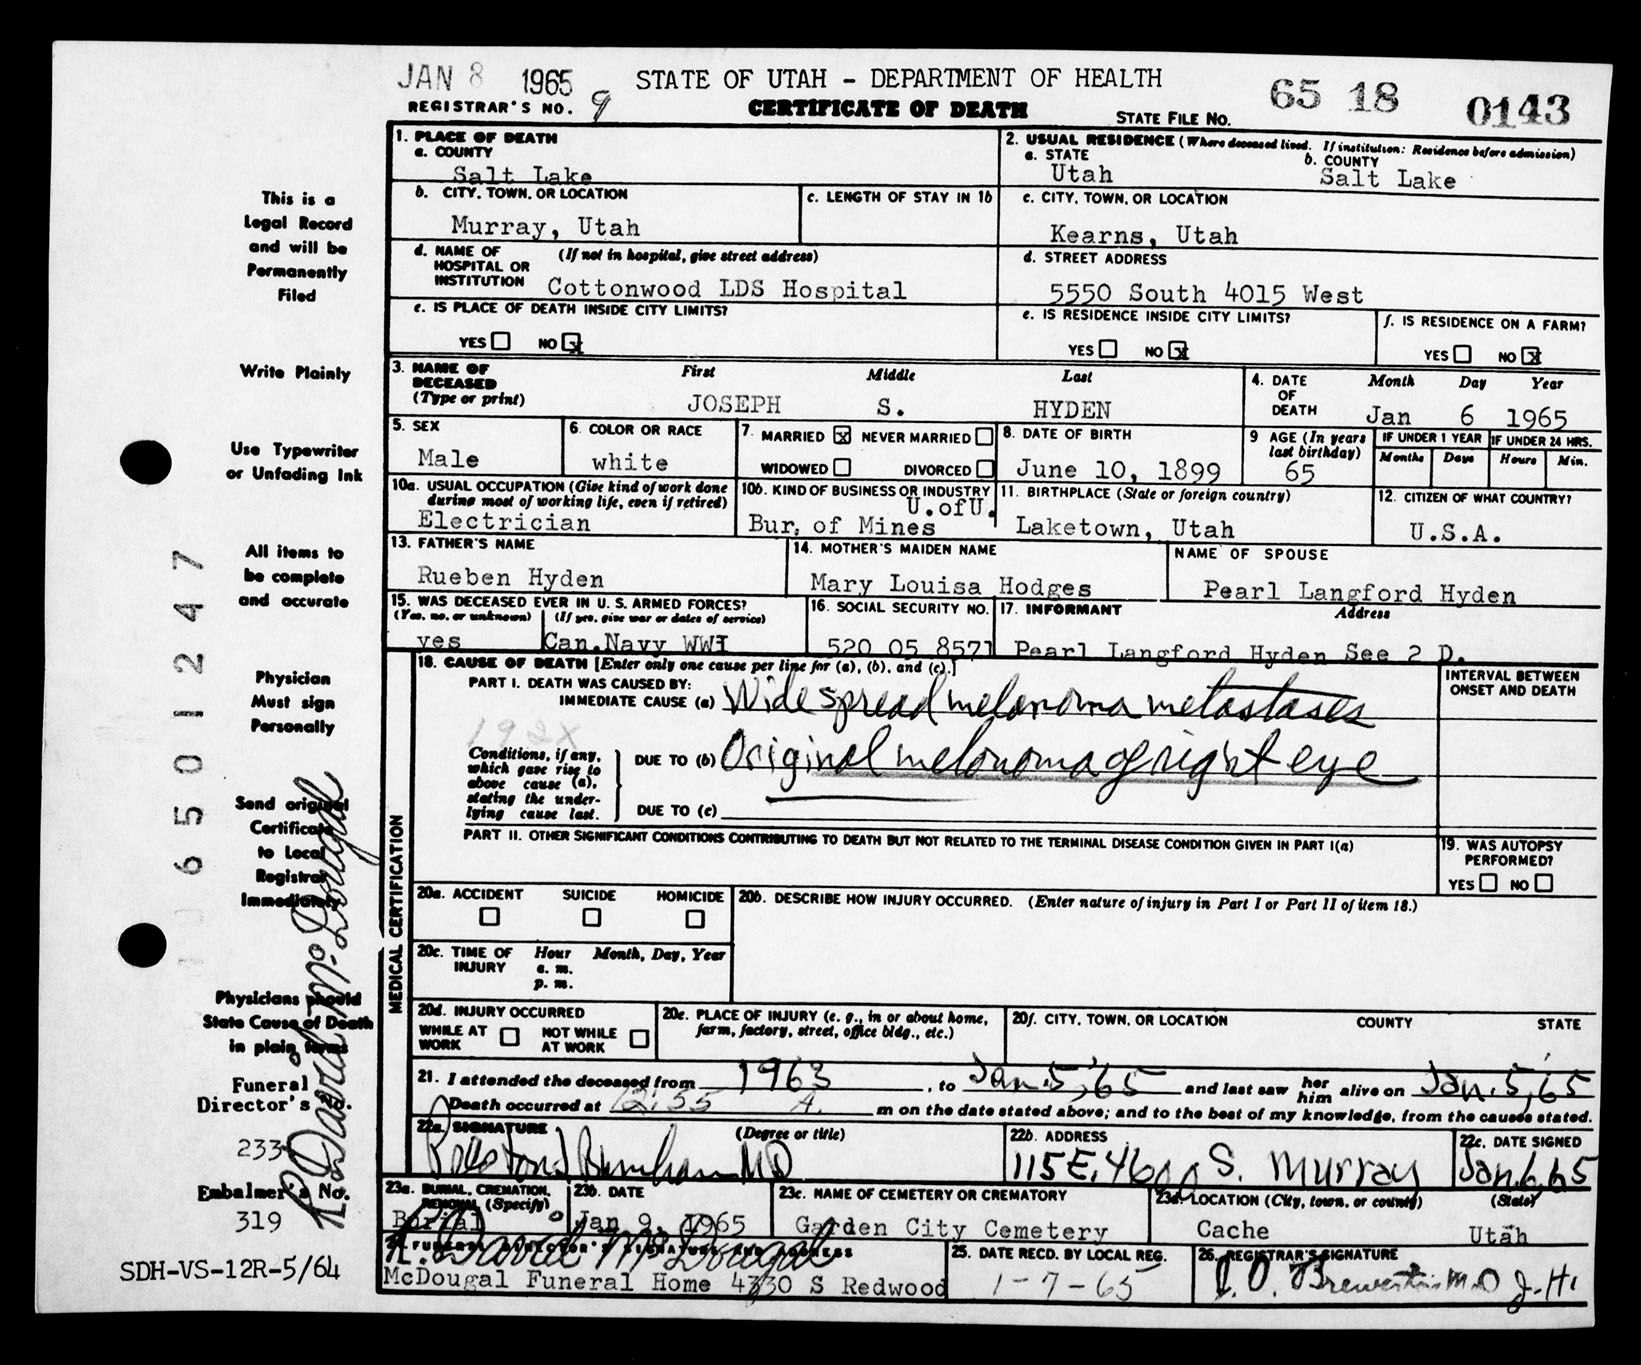 JAN 8 1965 STATE OF UTAH - DEPARTMENT OF HEALTH 65 18 0143
REGISTRAR'S NO. 9 CERTIFICATE OF DEATH STATE FILE NO.
This is a
Legal Record
and will be
Permanently
Filed
Write Plainly
Use Typewriter
or Unfading Ink
All items to
be complete
and accurate
Physician
Must sign
Personally
Send original
Certificate
to Local
Registrar
Immediately
Physicians should
State Cause of Death
in plain terms
Funeral
Director's No.
233
Embalmer's No.
319
SDH-VS-12R-5/64
6501247
R. David McDougal
1. PLACE OF DEATH
a. COUNTY
Salt Lake
2. USUAL RESIDENCE (Where deceased lived. If institution: Residence before admission)
a. STATE b. COUNTY
Utah Salt Lake
b. CITY, TOWN, OR LOCATION c. LENGTH OF STAY IN 1b c. CITY, TOWN, OR LOCATION
Murray, Utah Kearns, Utah
d. NAME OF HOSPITAL OR INSTITUTION (If not in hospital, give street address)
Cottonwood LDS Hospital
d. STREET ADDRESS
5550 South 4015 West
e. IS PLACE OF DEATH INSIDE CITY LIMITS?
YES NO X
e. IS RESIDENCE INSIDE CITY LIMITS? f. IS RESIDENCE ON A FARM?
YES NO X YES NO X
3. NAME OF DECEASED (Type or print) First Middle Last
JOSEPH S. HYDEN
4. DATE OF DEATH Month Day Year
Jan 6 1965
5. SEX 6. COLOR OR RACE 7. MARRIED X NEVER MARRIED 8. DATE OF BIRTH 9 AGE (In years last birthday) IF UNDER 1 YEAR IF UNDER 24 HRS.
Months Days Hours Min.
Male white WIDOWED DIVORCED June 10, 1899 65
10a. USUAL OCCUPATION (Give kind of work done during most of working life, even if retired)
Electrician
10b. KIND OF BUSINESS OR INDUSTRY
U.ofU.
Bur. of Mines
11. BIRTHPLACE (State or foreign country)
Laketown, Utah
12. CITIZEN OF WHAT COUNTRY?
U.S.A.
13. FATHER'S NAME 14. MOTHER'S MAIDEN NAME NAME OF SPOUSE
Rueben Hyden Mary Louisa Hodges Pearl Langford Hyden
15. WAS DECEASED EVER IN U. S. ARMED FORCES? 16. SOCIAL SECURITY NO. 17. INFORMANT Address
(Yes, no, or unknown) (If yes, give war or dates of service)
yes Can.Navy WWI 520 05 8571 Pearl Langford Hyden See 2 D.
MEDICAL CERTIFICATION
18. CAUSE OF DEATH [Enter only one cause per line for (a), (b), and (c).]
INTERVAL BETWEEN ONSET AND DEATH
PART I. DEATH WAS CAUSED BY:
IMMEDIATE CAUSE (a) Wide spread melanoma metastases
Conditions, if any, which gave rise to above cause (a), stating the underlying cause last.
DUE TO (b) Original melonoma of right eye
DUE TO (c)
PART II. OTHER SIGNIFICANT CONDITIONS CONTRIBUTING TO DEATH BUT NOT RELATED TO THE TERMINAL DISEASE CONDITION GIVEN IN PART I(a)
19. WAS AUTOPSY PERFORMED?
YES NO
20a. ACCIDENT SUICIDE HOMICIDE 20b. DESCRIBE HOW INJURY OCCURRED. (Enter nature of injury in Part I or Part II of item 18.)
20c. TIME OF INJURY Hour Month, Day, Year
a. m.
p. m.
20d. INJURY OCCURRED
WHILE AT WORK NOT WHILE AT WORK
20e. PLACE OF INJURY (e. g., in or about home, farm, factory, street, office bldg., etc.)
20f. CITY, TOWN, OR LOCATION COUNTY STATE
21. I attended the deceased from 1963, to Jan. 5, '65 and last saw her him alive on Jan. 5, '65
Death occurred at 12:55 A. m on the date stated above; and to the best of my knowledge, from the causes stated.
22a. SIGNATURE (Degree or title) 22b. ADDRESS 22c. DATE SIGNED
Preston J Burnham MD 115 E. 4600 S. Murray Jan. 6, 65
23a. BURIAL, CREMATION, REMOVAL (Specify) 23b. DATE 23c. NAME OF CEMETERY OR CREMATORY 23d. LOCATION (City, town, or county) (State)
Burial Jan 9, 1965 Garden City Cemetery Cache Utah
24. FUNERAL DIRECTOR'S SIGNATURE AND ADDRESS 25. DATE RECD. BY LOCAL REG. 26. REGISTRAR'S SIGNATURE
R. David McDougal
McDougal Funeral Home 4330 S Redwood 1-7-65